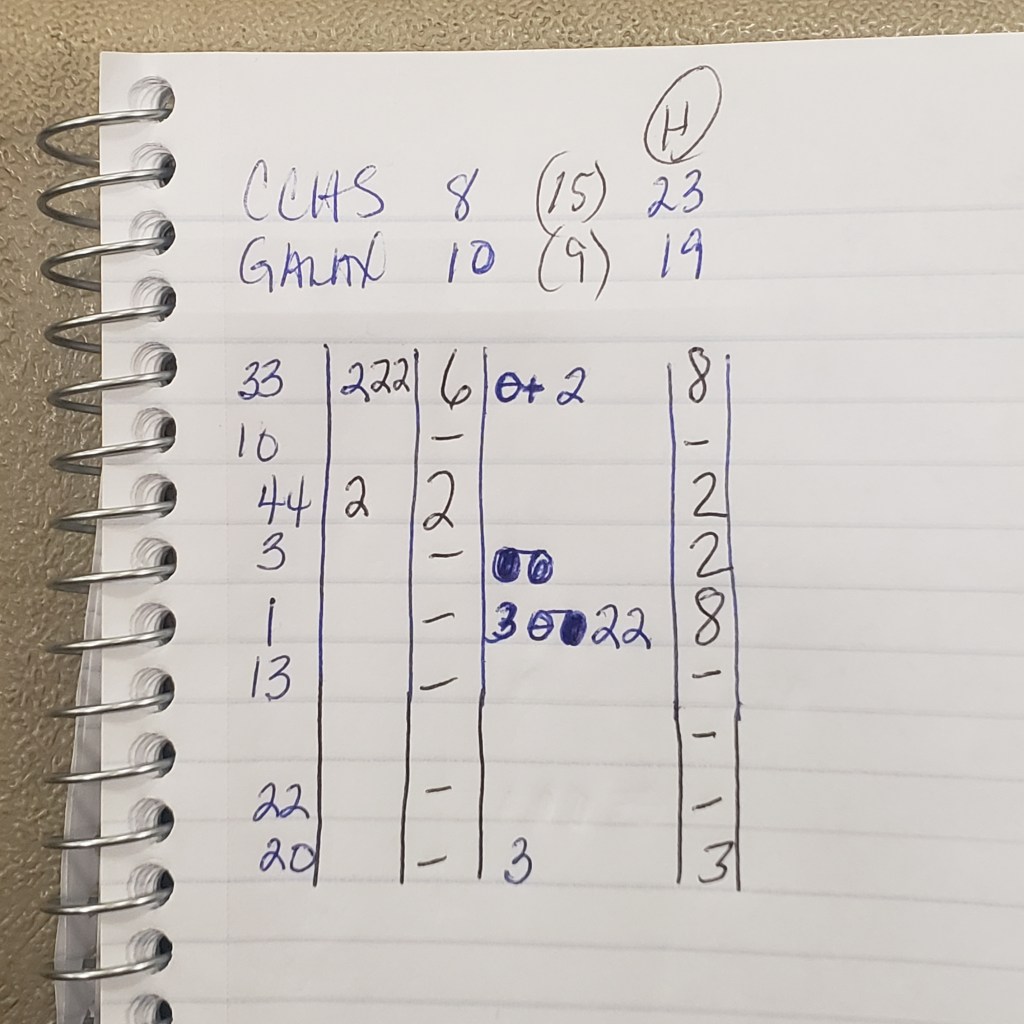 H
CCHS 8 (15) 23
GALAX 10 (9) 19
33 222 6 2 8
10 - -
44 2 2 2
3 - 2
1 - 3 22 8
13 - -
-
22 - -
20 - 3 3